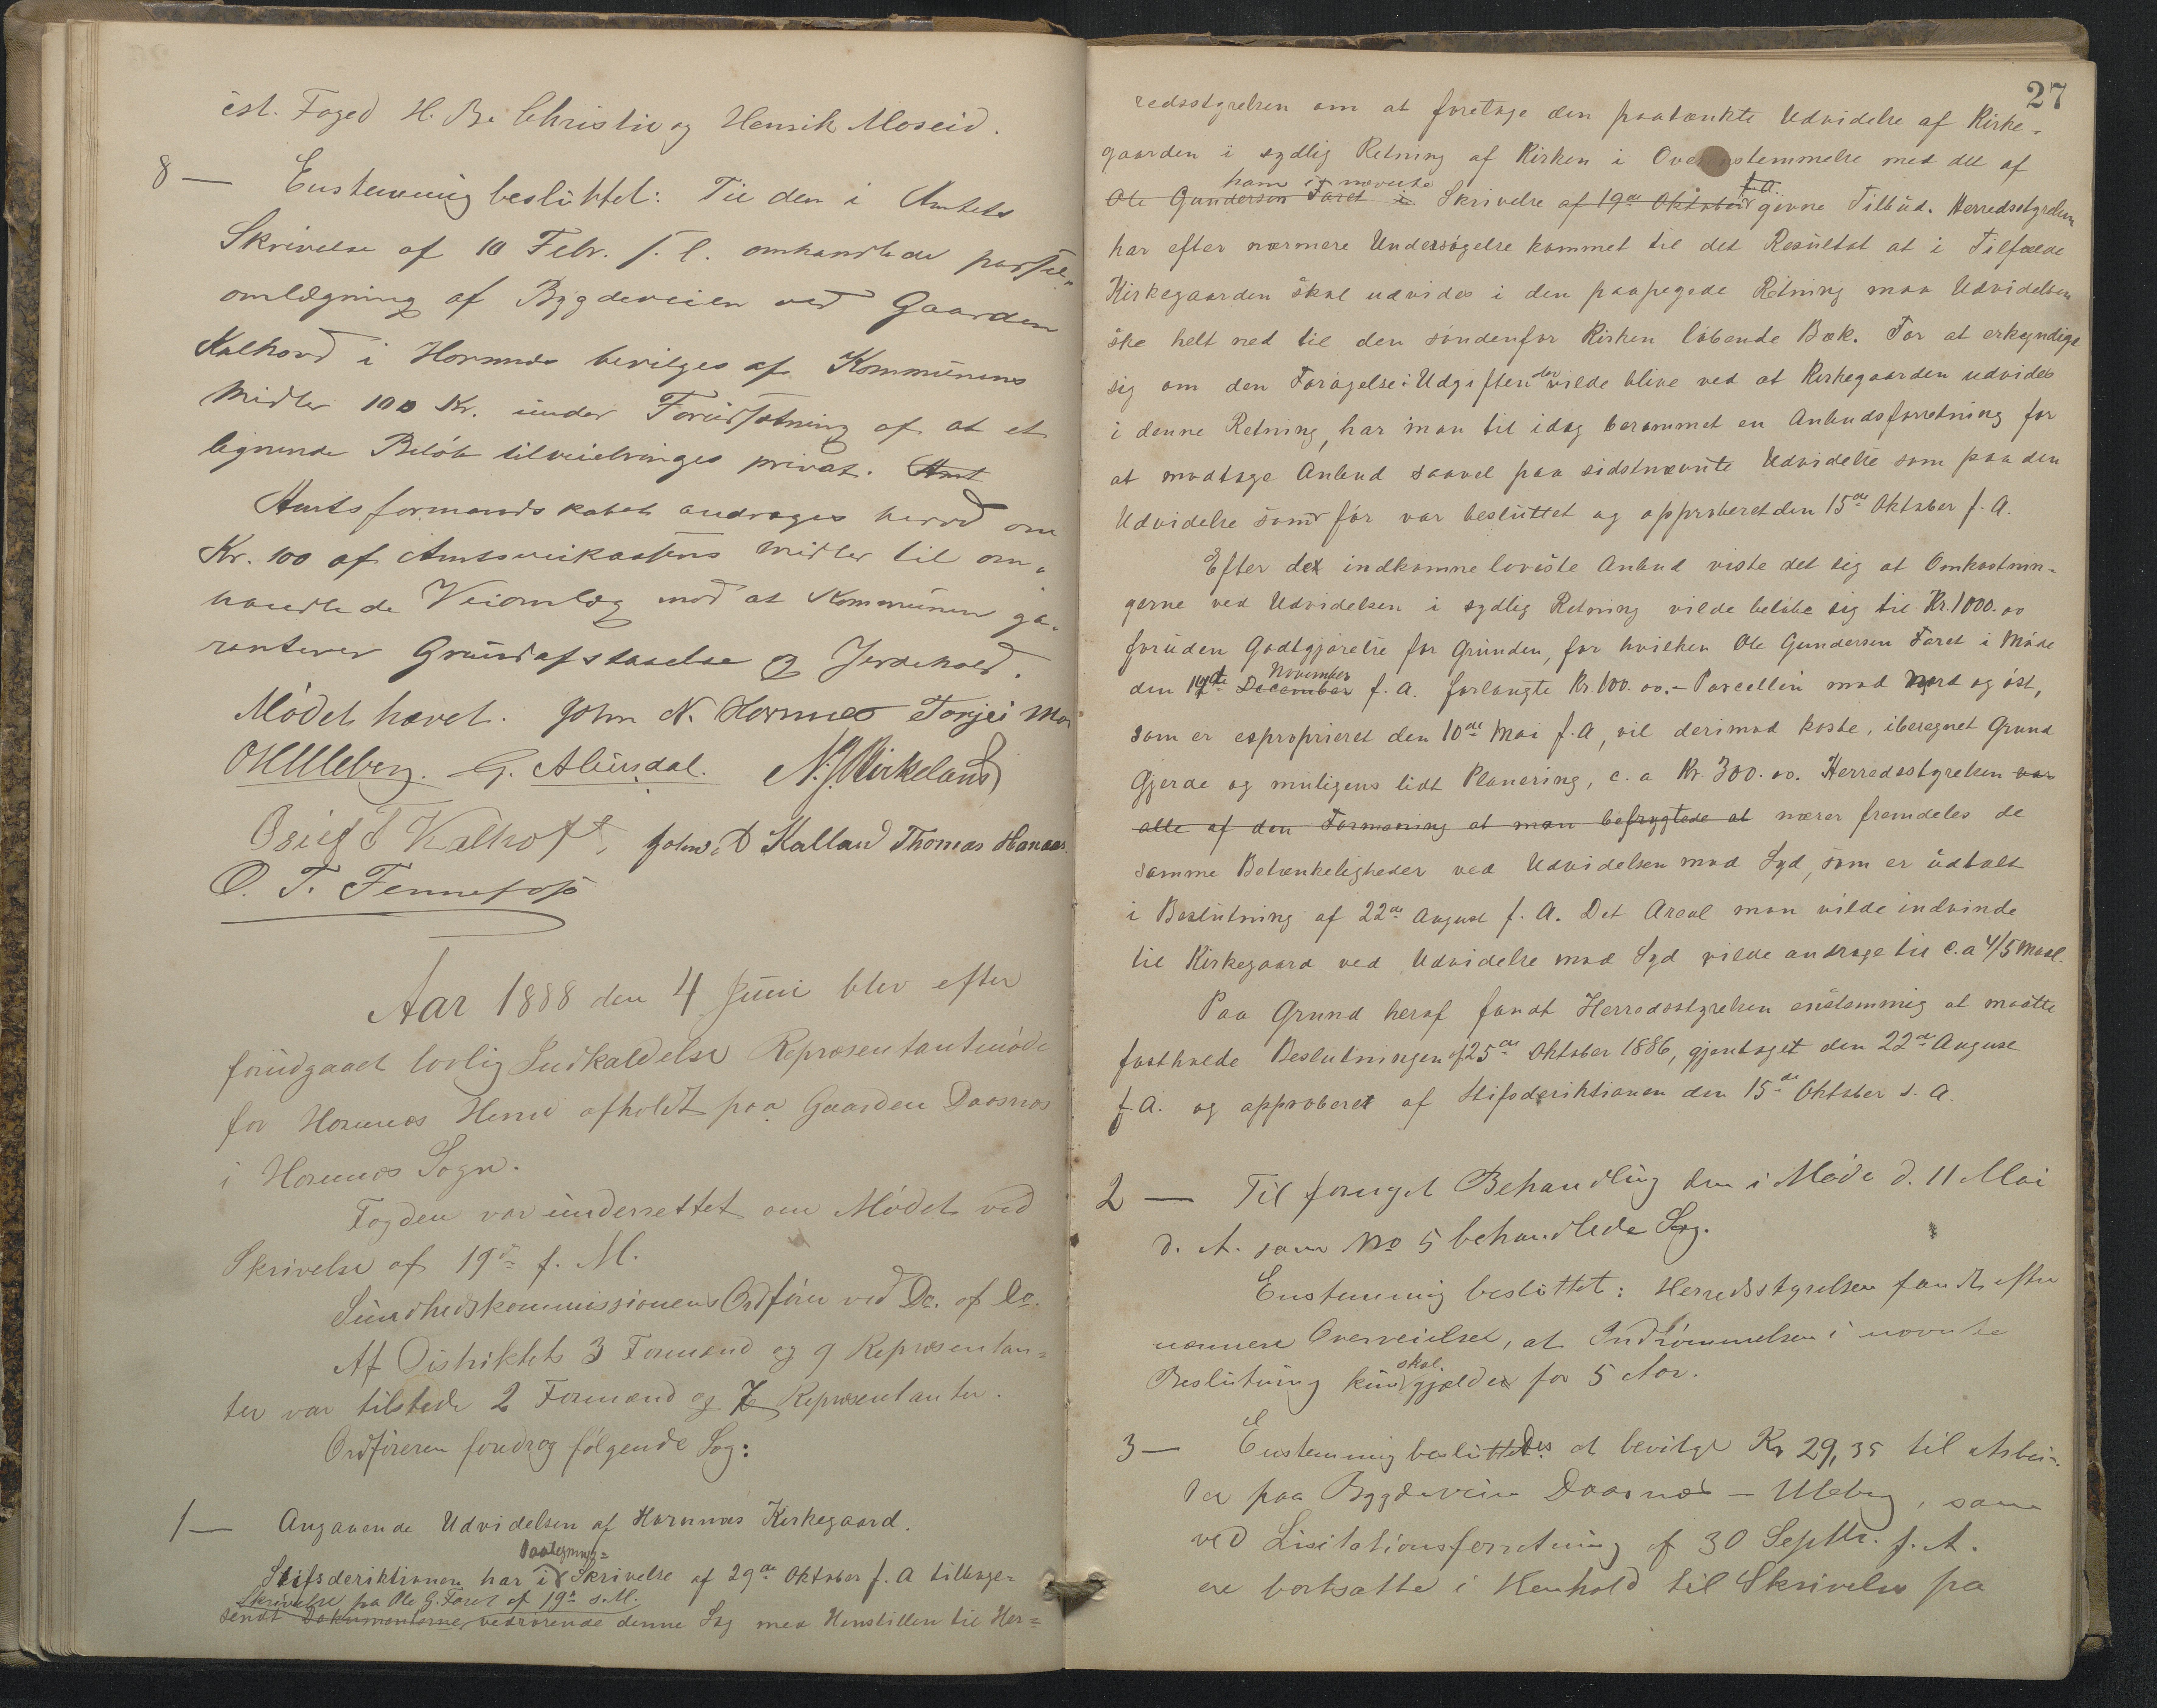 cst. Foged H. Be. Christie og Henrik Moseid.
8 — Enstemmig besluttet: Til den i Amtets
Skrivelse af 10 Febr. f. l. omhandlede
omlægning af Bygdeveien ved Gaarden
Kalhovd i Hornnes bevilges af Kommunens
Midler 100 Kr. under Forudsætning af at et
lignende Beløb tilveiebringes privat. Amt
Amtsformandskabet andrages herved om
Kr. 100 af Amtsveikassens Midler til om-
handlede Veiomlæg mod at Kommunen ga-
ranterer Grundafstaaelse og Jordehold.
Mødet hævet. John N. Hornnes Torjei Mo
OHUleberg. G. Abusdal. N. J. Birkeland
Osuf T Kalhoft, John. D Kalland Thomas Hanaas
O. T. Fennefoss
Aar 1888 den 4 Juni blev efter
forudgaaet lovlig Indkaldelse Repræsentantmøde
for Hornnes Herred afholdt paa Gaarden Daasnæs
i Hornnes Sogn.
Fogden var underrettet om Mødet ved
Skrivelse af 19de f. M.
Sundhedskommissionens Ordfører ved Do. af Do.
Af Distriktets 3 Formænd og 9 Repræsentan-
ter var tilstede 2 Formænd og 7 Repræsentanter.
Ordføreren foredrog følgende Sag:
1 — Angaaende Udvidelsen af Hornnæs Kirkegaard.
Paategnings=
Stifsderiktionen har i Skrivelse af 29de Oktober f. A tilbage-
Skrivelse fra Ole G. Faret af 19de s. M.
sendt Dokumenterne vedrørende denne Sag med Henstillen til Her=
27
redsstyrelsen om at foretage den paatænkte Udvidelse af Kirke-
gaarden i sydlig Retning af Kirken i Overensstemmelse med det af
ham i nævnte f. A.
Ole Gunderson Faret i Skrivelse af 19de Oktober givne Tilbud. Herredsstyrelsen
har efter nærmere Undersøgelse kommet til det Resultat at i Tilfælde
Kirkegaarden skal udvides i den paapegede Retning maa Udvidelsen
ske helt ned til den søndenfor Kirken løbende Bæk. For at erkyndige
sig om den Forøgelse i Udgiften der vilde blive ved at Kirkegaarden udvides
i denne Retning, har man til idag berammet en Anbudsforretning for
at modtage Anbud saavel paa sidstnævnte Udvidelse som paa den
Udvidelse som før var besluttet og approberet den 15de Oktober f. A.
Efter det indkomne laveste Anbud viste det sig at Omkostnin-
gerne ved Udvidelsen i sydlig Retning vilde beløbe sig til Kr. 1000.00
foruden Godtgjørelse for Grunden, for hvilken Ole Gundersen Faret i Møde
November
den 19de December f. A. forlangte Kr. 100.00.- Parcellen mod Nord og øst,
som er exproprieret den 10de Mai f. A, vil derimod koste, iberegnet Grund
Gjerde og muligens lidt Planering, c. a Kr. 300.00. Herredsstyrelsen var
alle af den Formening at man befrygtede at nærer fremdeles de
samme Betænkeligheder ved Udvidelsen mod Syd, som er udtalt
i Beslutning af 22de August f. A. Det Areal man vilde indvinde
til Kirkegaard ved Udvidelse mod Syd vilde andrage til c. a 4/5 Maal.
Paa Grund heraf fandt Herredsstyrelsen enstemmig at maatte
fastholde Beslutningen af 25de Oktober 1886, gjentaget den 22de August
f. A. og approberet af Stifsderiktionen den 15de Oktober s. A.
2 — Til fornyet Behandling den i Møde d. 11 Mai
d. A. som No 5 behandlede Sag.
Enstemmig besluttet: Herredsstyrelsen fandt efter
nærmere Overveielse, at Indrømmelsen i nævnte
skal
Beslutning kun gjælder for 5 Aar.
3 — Enstemmig besluttedes at bevilge Kr 29,35 til Arbei-
der paa Bygdeveien Daasnæs — Uleberg, som
ved Lisitationsforretning af 30 Septbr. f. A.
ere bortsatte i Henhold til Skrivelse fra